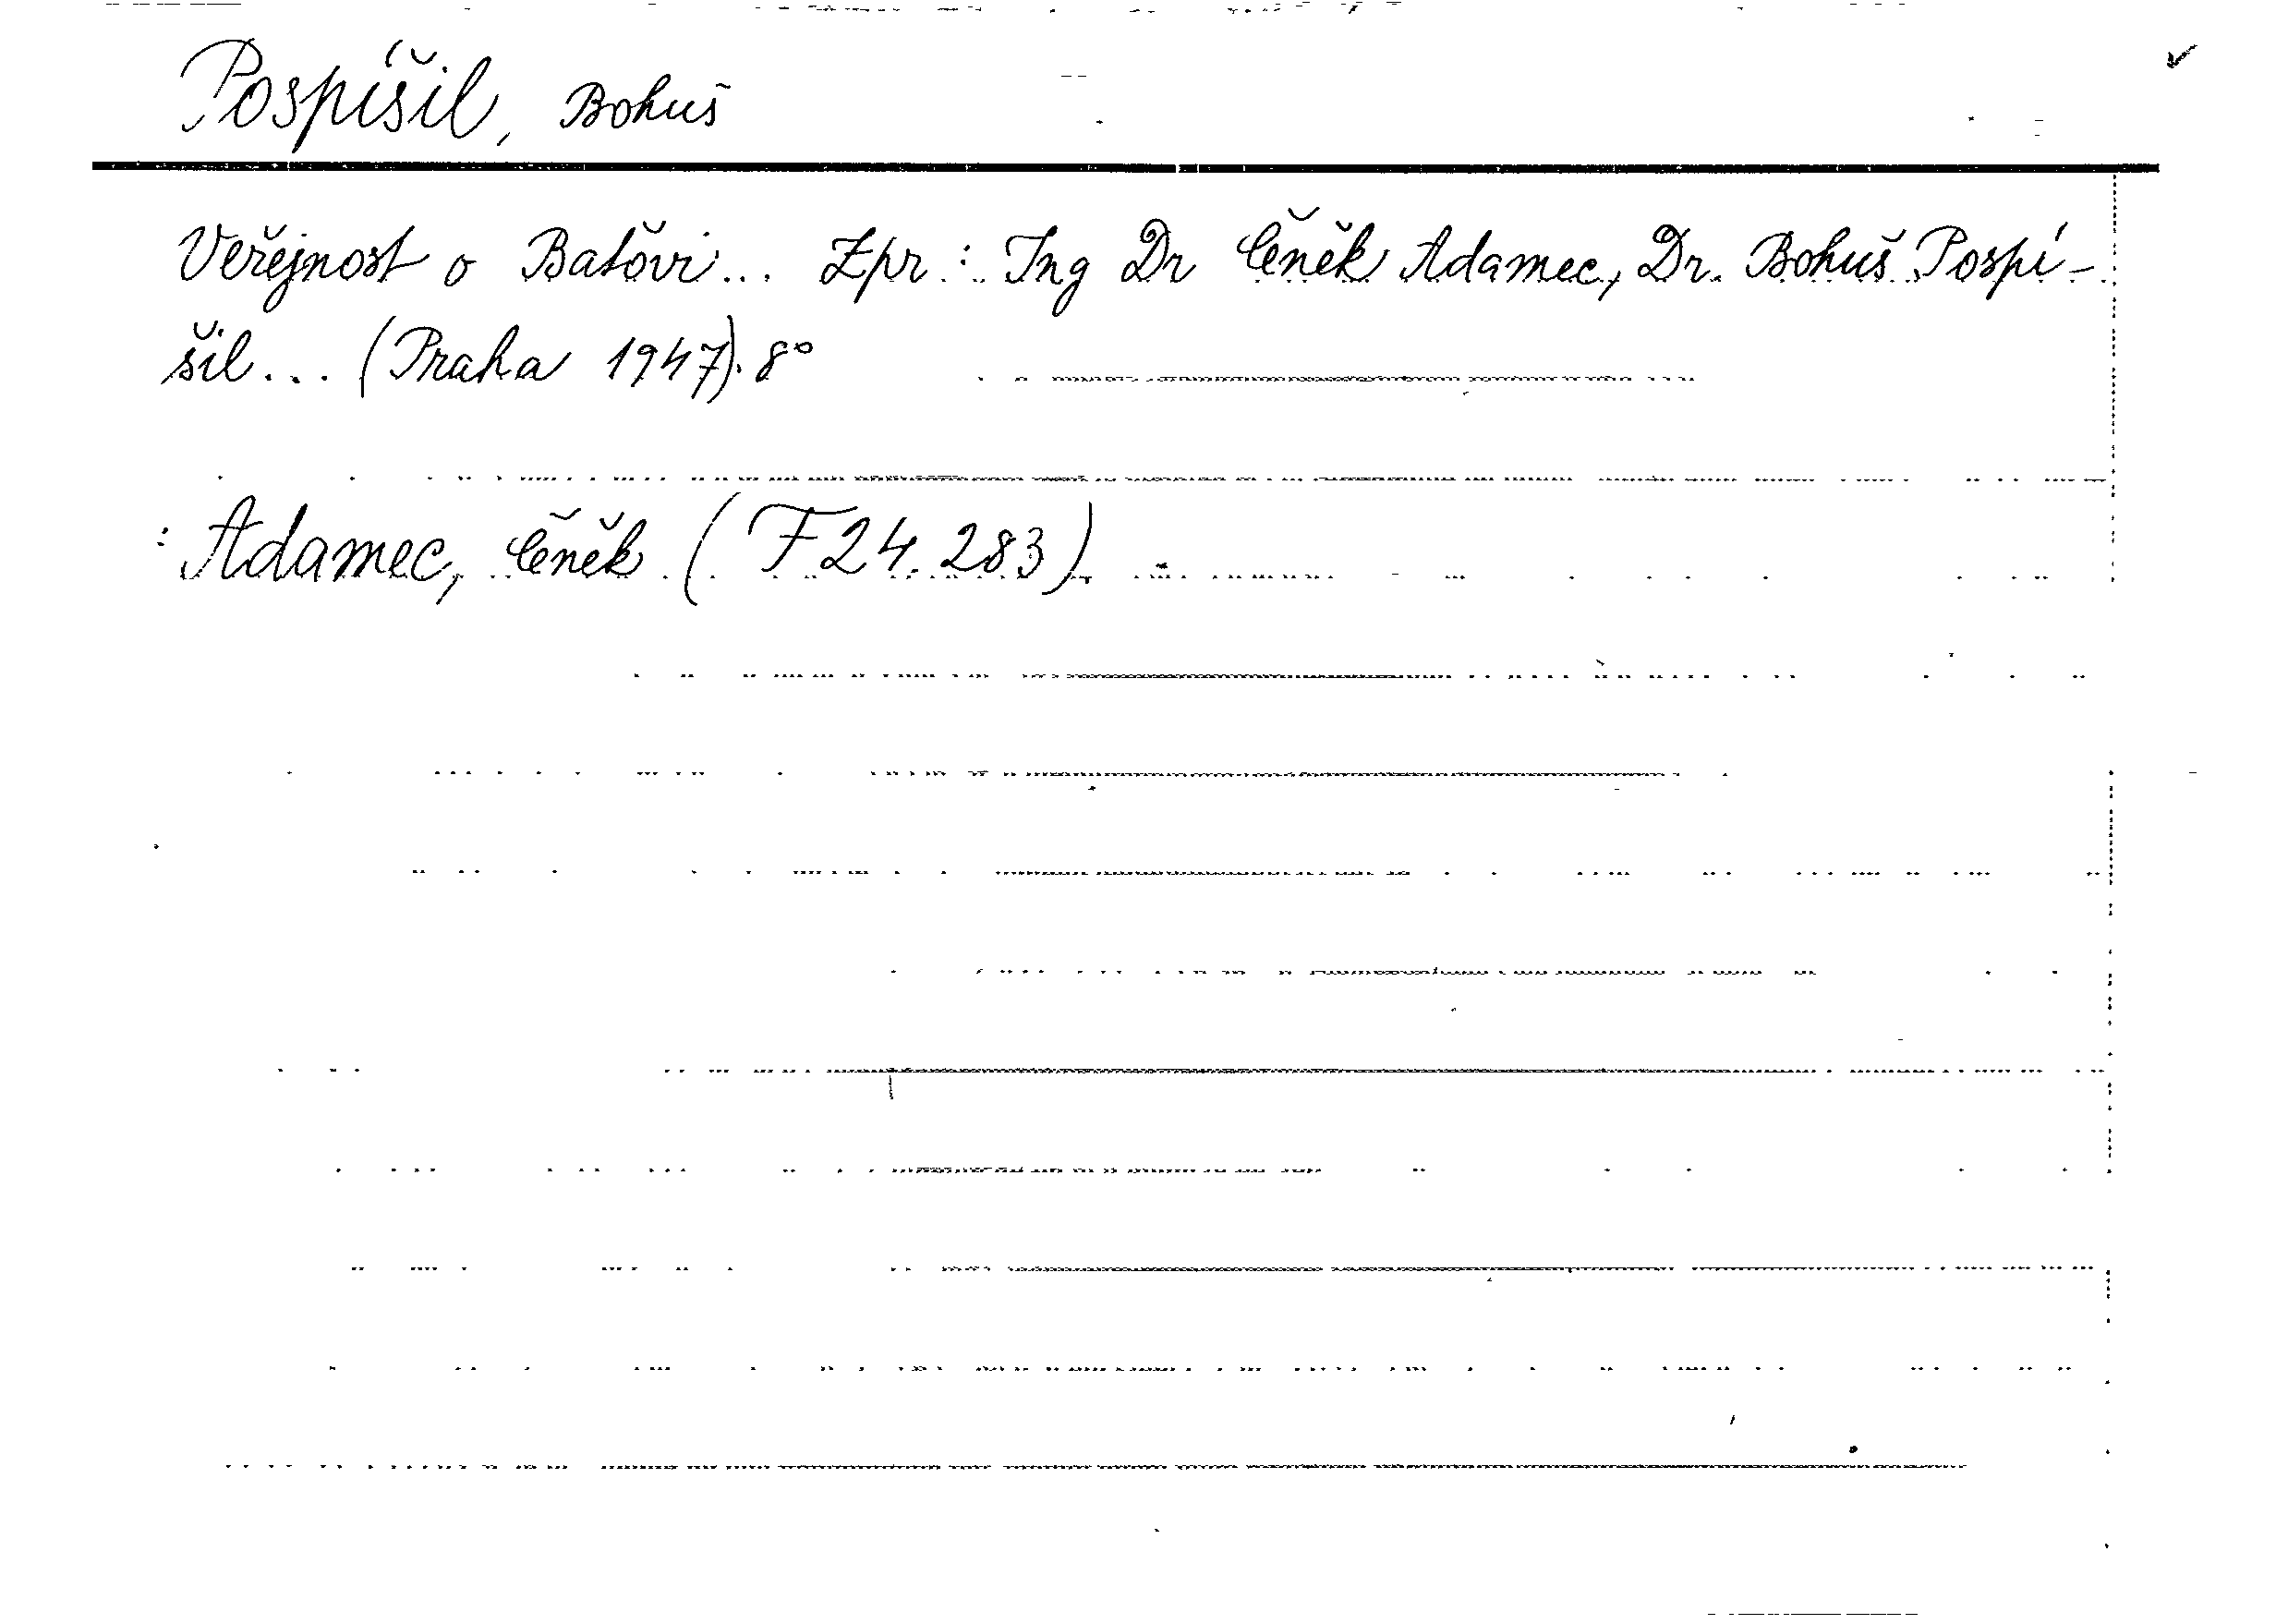 Pospíšil, Bohuš
Veřejnost o Baťovi... Zpr: Ing Dr Čeněk Adamec, Dr. Bohuš Pospí-
šil... (Praha 1947). 8°
: Adamec, Čeněk (F 24.283)